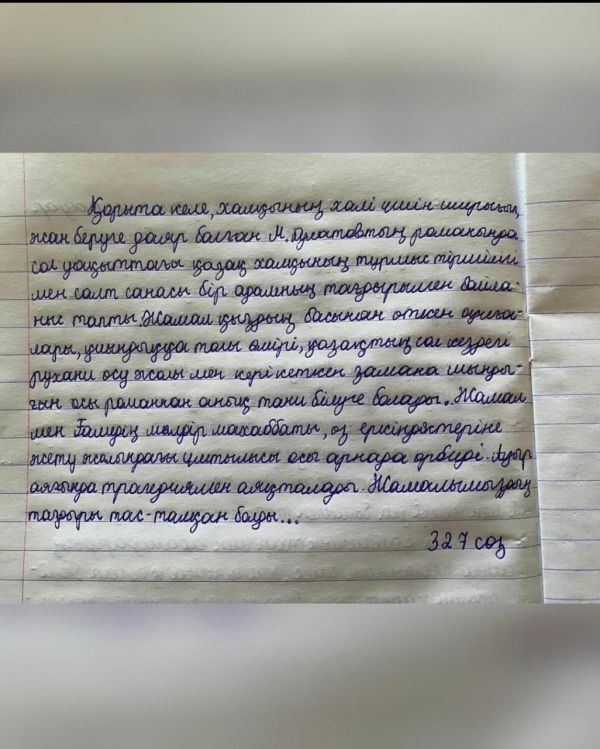 Қорыта келе, халқының халі үшін шырығып,
жан беруге даяр болған М. Дулатовтың романында
сол уақыттағы қазақ халқының тұрмыс тіршілігі
мен салт санасы бір адамның тағдырымен байла-
ныс тапты. Жамал қыздың басынан өткен оқиға-
лары, қиындыққа толы өмірі, қазақтың сол кездегі
рухани өсу жолы мен кері кеткен замана шынды-
ғын осы романнан анық тани білуге болады. Жамал
мен Ғалидің мөлдір махаббаты, өз еркіндіктеріне
жету жолындағы ұмтылысы осы арнада өрбиді. Ақыр
аяғында трагедиямен аяқталады. Жамалымыздың
тағдыры тас-талқан болды...
327 сөз